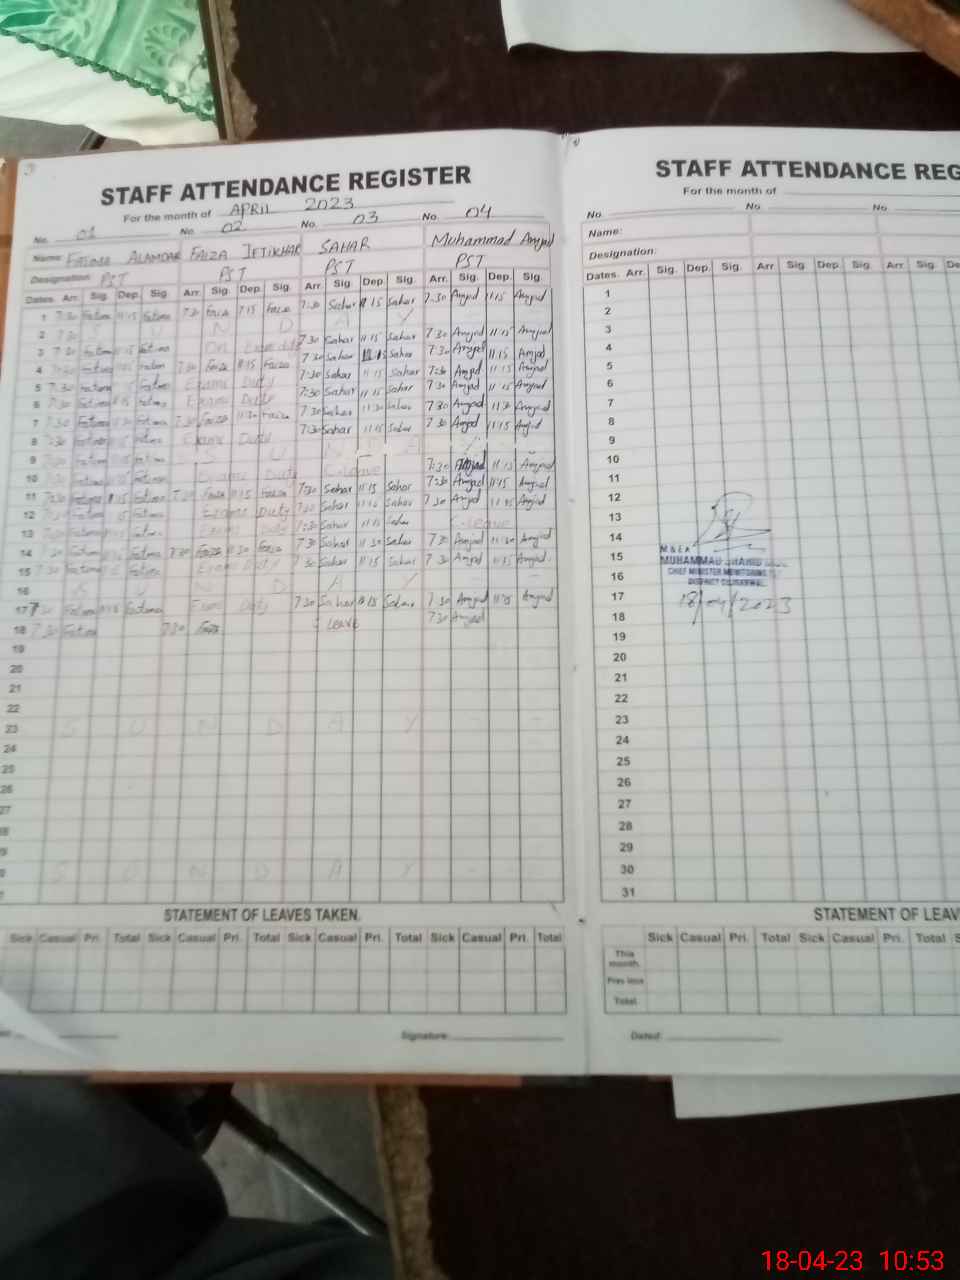 STAFF ATTENDANCE REGISTER
For the month of APRIL 2023
No. 01 No. 02 No. 03 No. 04
Name: FATIMA ALAMDAR FAIZA IFTIKHAR SAHAR Muhammad Amjad
Designation: PST PST PST PST
Dates. Arr. Sig. Dep. Sig. Arr. Sig. Dep. Sig. Arr. Sig. Dep. Sig. Arr. Sig. Dep. Sig.
1 7:30 Fatima 11:15 Fatima 7:30 Faiza 11:15 Faiza 7:30 Sahar 11:15 Sahar 7:30 Amjad 11:15 Amjad
2 S U N D A Y
3 7:30 Fatima 11:15 Fatima On Exam duty 7:30 Sahar 11:15 Sahar 7:30 Amjad 11:15 Amjad
4 7:30 Fatima 11:15 Fatima 7:30 Faiza 11:15 Faiza 7:30 Sahar 11:15 Sahar 7:30 Amjad 11:15 Amjad
5 7:30 Fatima 11:15 Fatima Exams Duty 7:30 Sahar 11:15 Sahar 7:30 Amjad 11:15 Amjad
6 7:30 Fatima 11:15 Fatima Exams Duty 7:30 Sahar 11:15 Sahar 7:30 Amjad 11:15 Amjad
7 7:30 Fatima 11:30 Fatima 7:30 Faiza 11:30 Faiza 7:30 Sahar 11:30 Sahar 7:30 Amjad 11:30 Amjad
8 7:30 Fatima 11:15 Fatima Exams Duty 7:30 Sahar 11:15 Sahar 7:30 Amjad 11:15 Amjad
9 S U N D A Y
10 7:30 Fatima 11:15 Fatima Exams Duty C-leave 7:30 Amjad 11:15 Amjad
11 7:30 Fatima 11:15 Fatima 7:30 Faiza 11:15 Faiza 7:30 Sahar 11:15 Sahar 7:30 Amjad 11:15 Amjad
12 7:30 Fatima 11:15 Fatima Exams Duty 7:30 Sahar 11:15 Sahar 7:30 Amjad 11:15 Amjad
13 7:30 Fatima 11:15 Fatima Exams Duty 7:30 Sahar 11:15 Sahar C-leave
14 7:30 Fatima Fatima 7:30 Faiza 11:30 Faiza 7:30 Sahar 11:30 Sahar 7:30 Amjad 11:30 Amjad
15 7:30 Fatima 11:15 Fatima Exams Duty 7:30 Sahar 11:15 Sahar 7:30 Amjad 11:15 Amjad
16 S U N D A Y
17 7:30 Fatima 11:15 Fatima Exam Duty 7:30 Sahar 11:15 Sahar 7:30 Amjad 11:15 Amjad
18 7:30 Fatima 7:30 Faiza Leave 7:30 Amjad
19
20
21
22
23 S U N D A Y
24
25
26
27
S U N D A Y
STATEMENT OF LEAVES TAKEN.
Sick Casual Pri. Total Sick Casual Pri. Total Sick Casual Pri. Total Sick Casual Pri. Total
Signature:
STAFF ATTENDANCE REG
For the month of
No. No No.
Name:
Designation:
Dates. Arr. Sig. Dep. Sig. Arr Sig. Dep. Sig. Arr Sig. Dep.
1
2
3
4
5
6
7
8
9
10
11
12
13
14
15
16
17
18
19
20
21
22
23
24
25
26
27
28
29
30
31
M & E A
MUHAMMAD
CHIEF MINISTER MONITORING
DISTRICT
18/04/2023
STATEMENT OF LEAV
Sick Casual Pri. Total Sick Casual Pri. Total S
This month.
Total.
Dated:
18-04-23 10:53